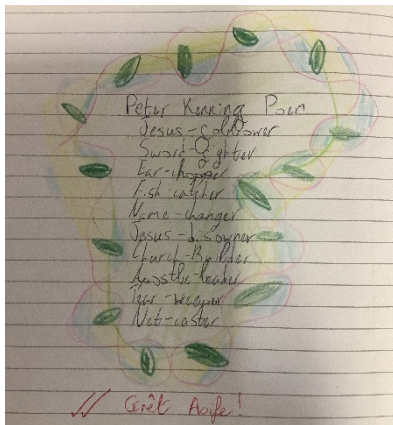 Peter Kenning Poem
Jesus-follower
Sword-fighter
Ear-chopper
Fish-catcher
Name-changer
Jesus-disowner
Church-Builder
Apostle-leader
Tear-weeper
Net-caster
Aoife!